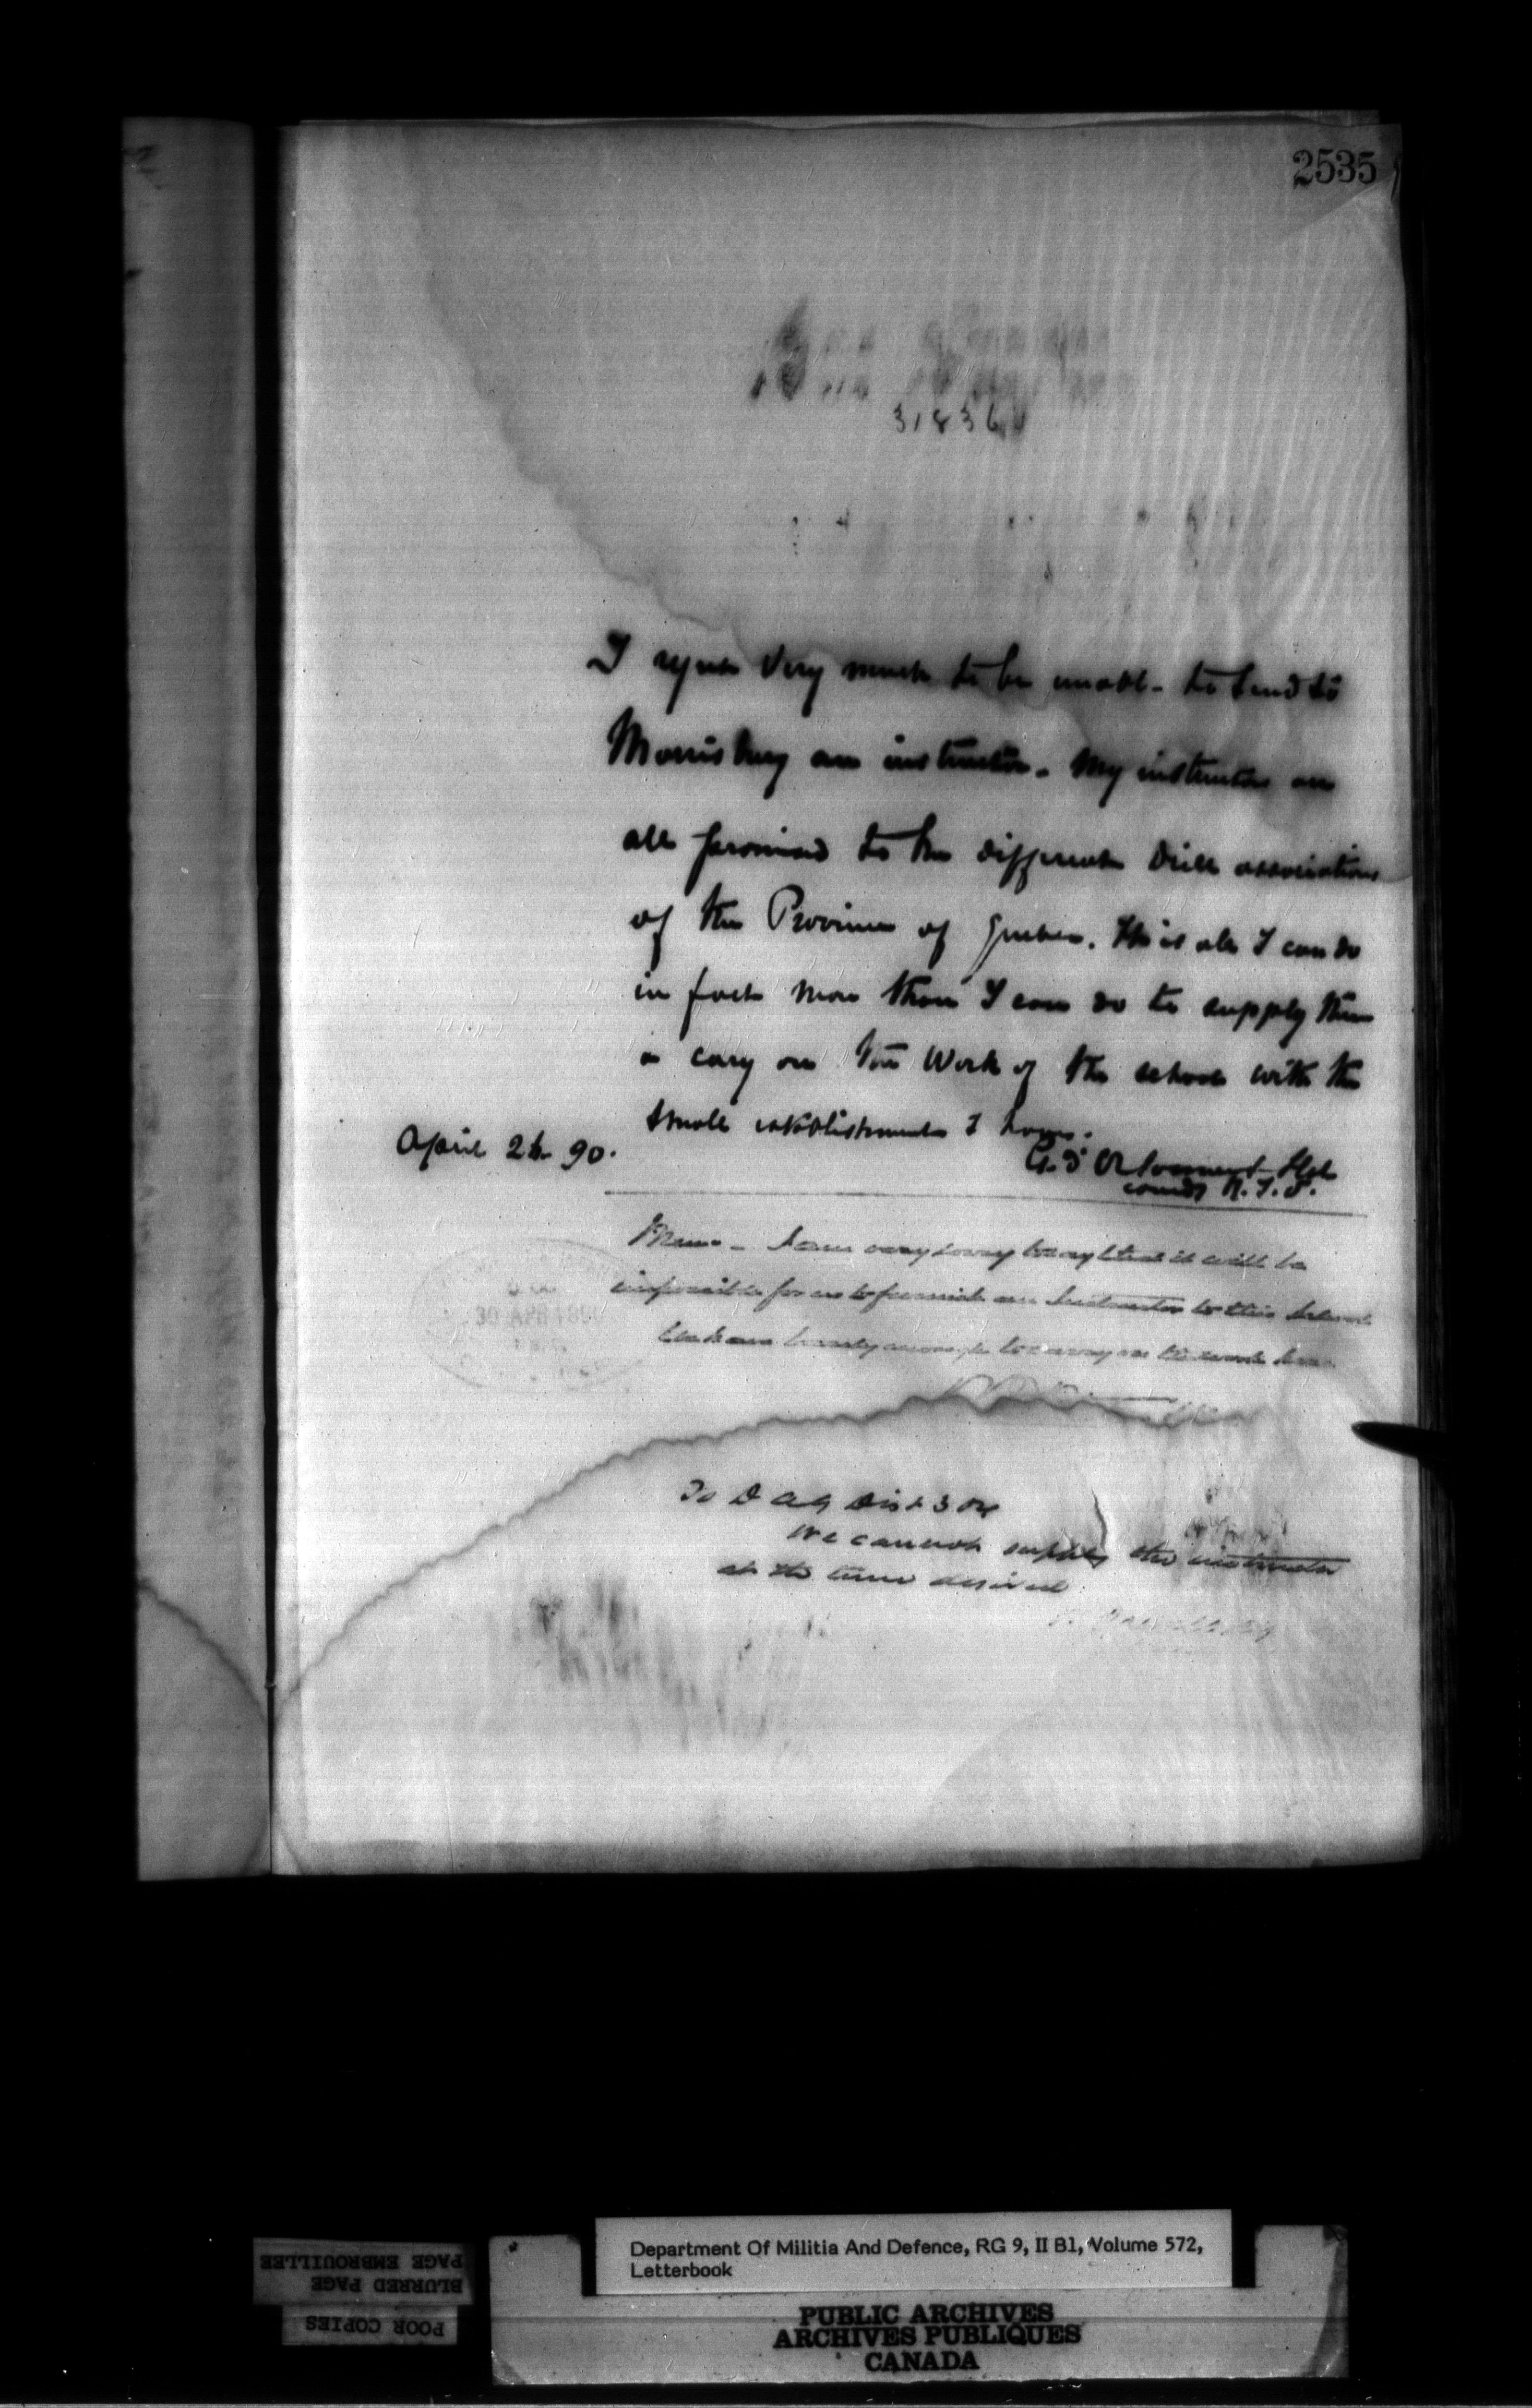 2535
31836
I regret very much to be unable to send to
Morrisburg an instructor. My instructors are
all promised to the different Drill associations
of the Province of Quebec. This is all I can do
in fact more than I can do to supply them
& cary on the Work of the school with the
small establishment I have.
April 26 90.
G. d'Orsonnens Lt Col
comdt R. I. S.
Memo - I am very sorry to say that it will be
impossible for us to furnish an Instructor to this School
We have barely enough to carry on the work here
30 APR 1890
To D A G Dist 3 & 4
We cannot supply the instructor
at the time desired
Department Of Militia And Defence, RG 9, II B1, Volume 572,
Letterbook
PUBLIC ARCHIVES
ARCHIVES PUBLIQUES
CANADA
POOR COPIES
BLURRED PAGE
PAGE EMBROUILLEE